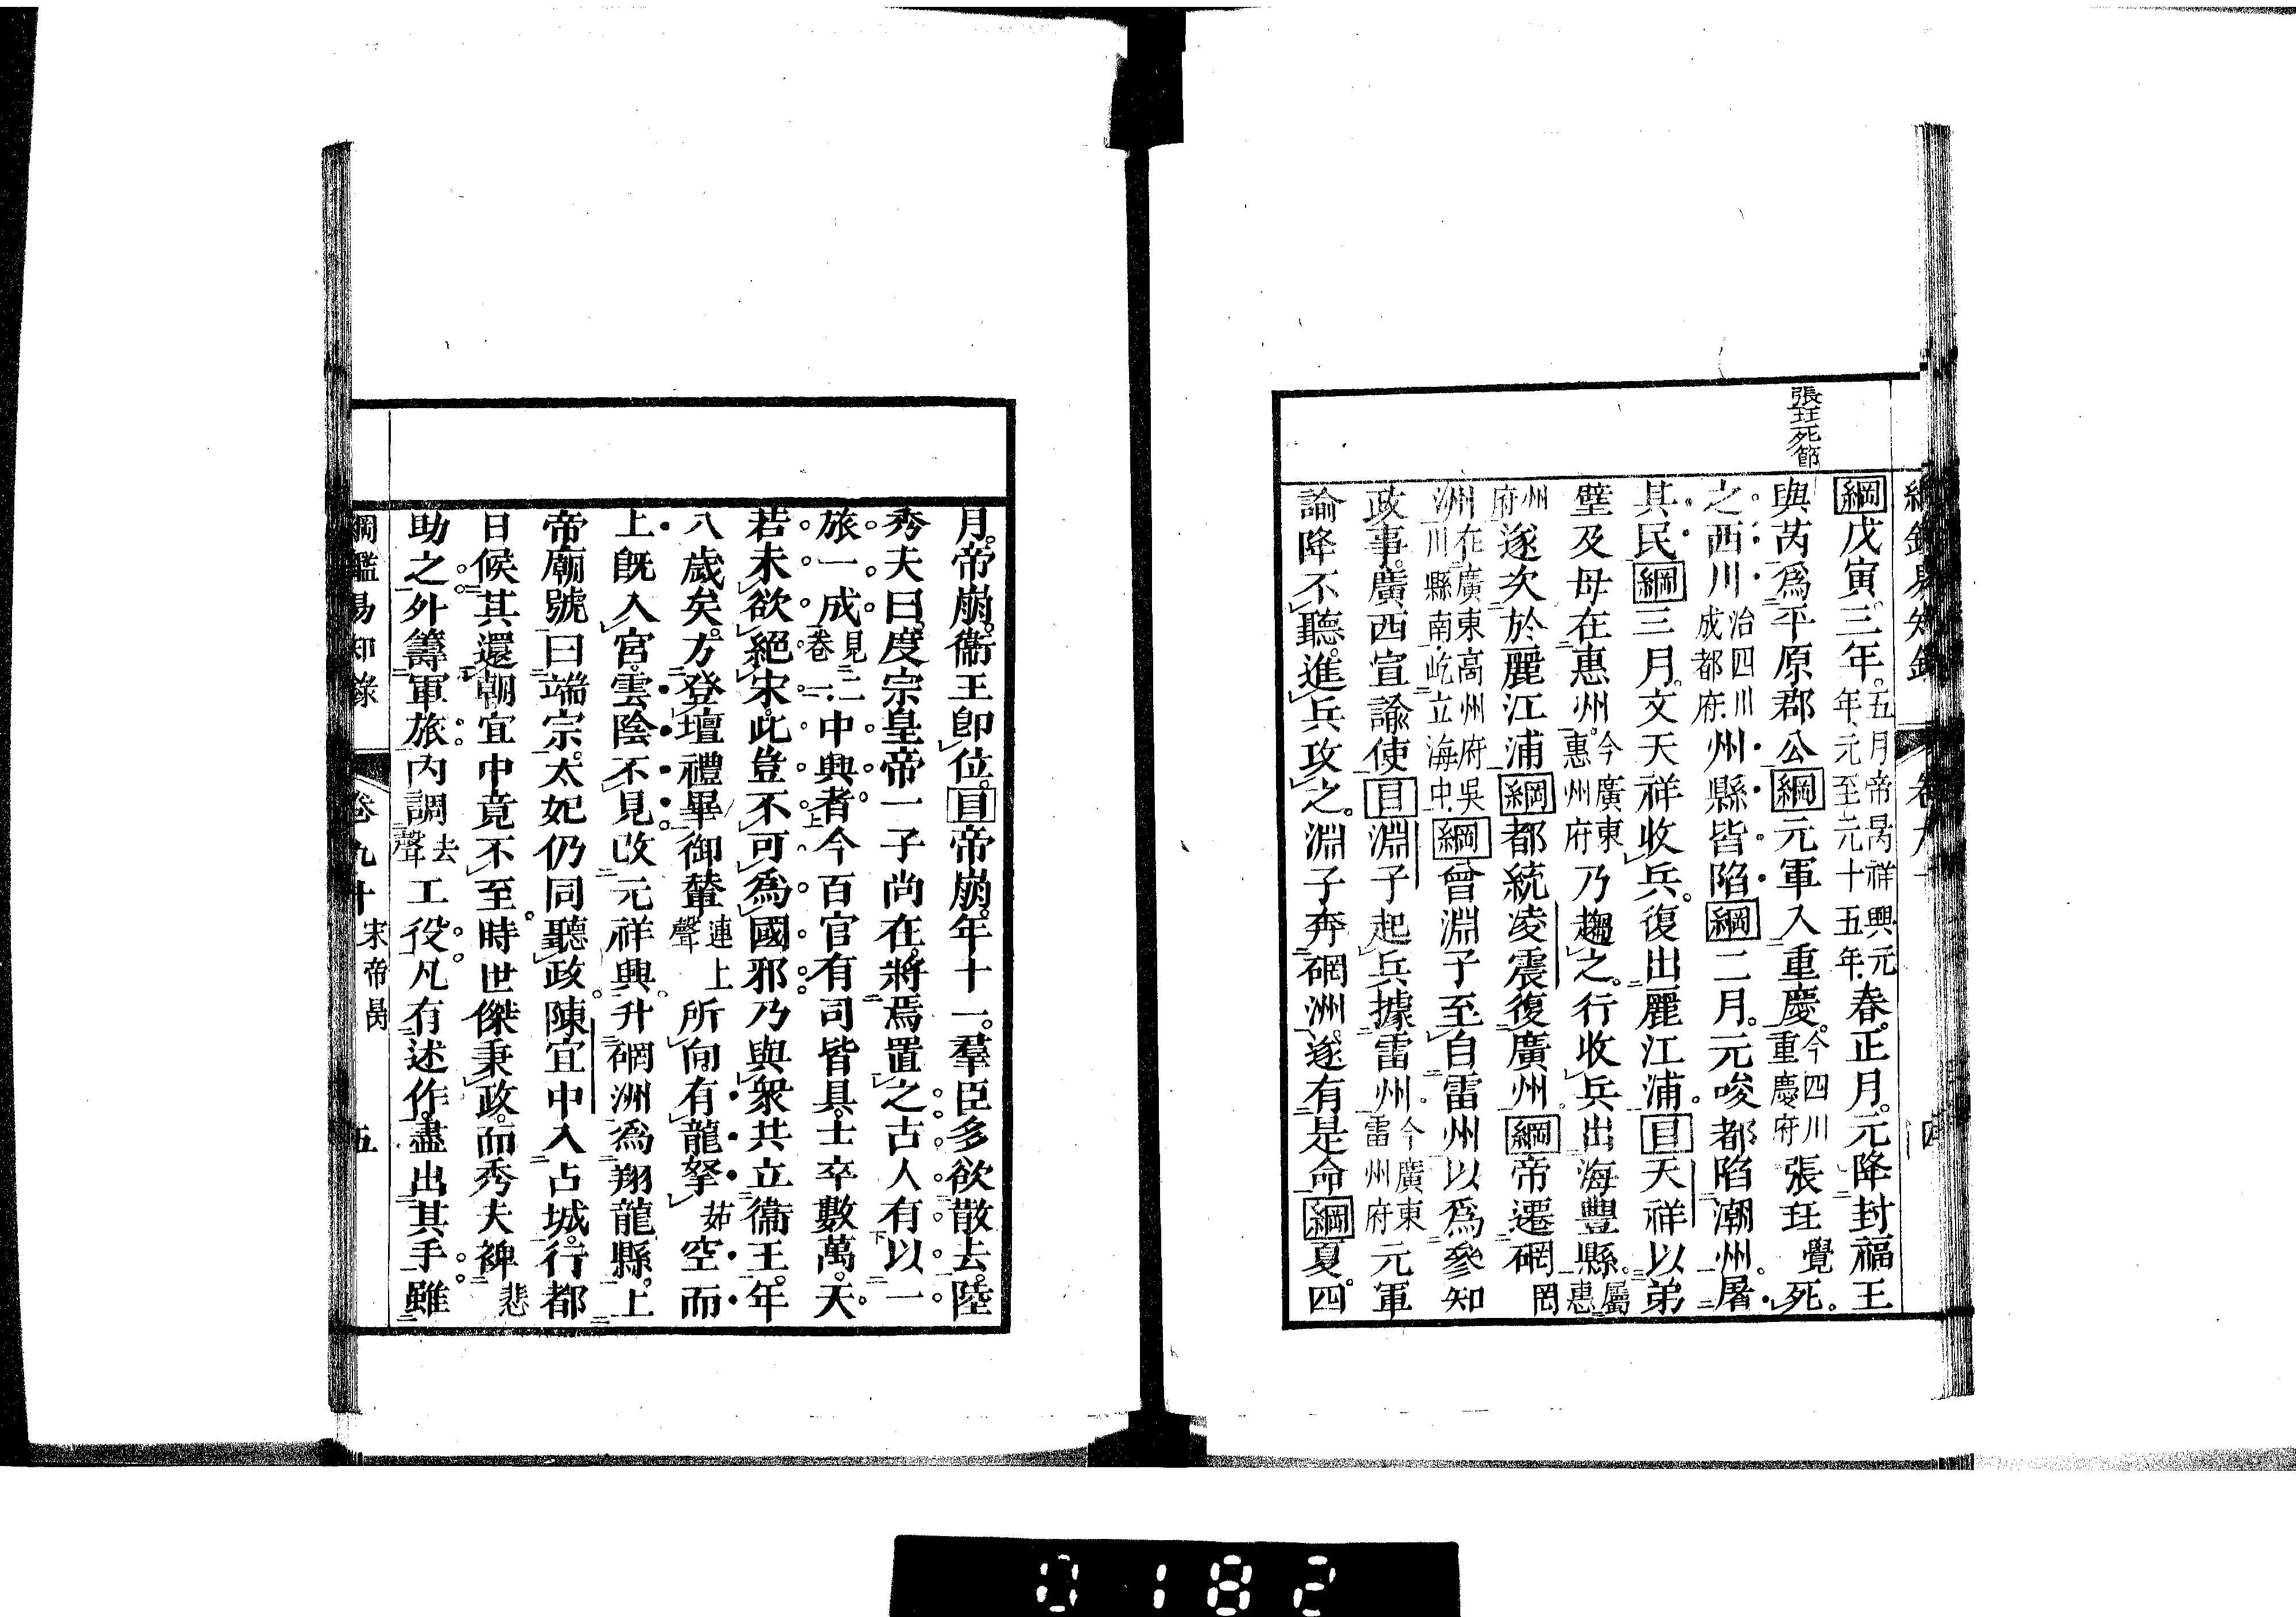 張珏死節
綱戊寅三年。五月帝昺祥興元年元至元十五年春。正月。元降封福王
與芮爲平原郡公綱元軍入重慶。今四川重慶府張珏覺死。
之西川治四川成都府州縣皆陷綱二月。元唆都陷潮州。屠
其民綱三月。文天祥收兵。復出麗江浦。目天祥以弟
璧及母在惠州。今廣東惠州府乃趨之。行收兵出海豐縣。屬惠
州府遂次於麗江浦綱都統凌震復廣州。綱帝遷碙岡
洲在廣東高州府吳川縣南屹立海中綱曾淵子至自雷州以爲參知
政事。廣西宣諭使目淵子起兵據雷州。今廣東雷州府元軍
諭降不聽。進兵攻之。淵子奔碙洲。遂有是命綱夏。四
月。帝崩。衞王卽位。目帝崩。年十一。羣臣多欲散去。陸
秀夫曰。度宗皇帝一子尚在。將焉置之古人有以一
旅一成見二卷中興者今百官有司皆具。士卒數萬。天
若未欲絕宋。此豈不可爲國邪乃與衆共立衞王。年
八歲矣。方登壇禮畢御輦連上聲所向。有龍拏茹空而
上旣入宮。雲陰不見改元祥興。升碙洲爲翔龍縣。上
帝廟號曰端宗。太妃仍同聽政。陳宜中入占城。行都
日候其還朝宜中竟不至。時世傑秉政。而秀夫裨悲
助之。外籌軍旅。內調去聲工役。凡有述作。盡出其手雖
綱鑑易知錄 卷九十 宋帝昺 五